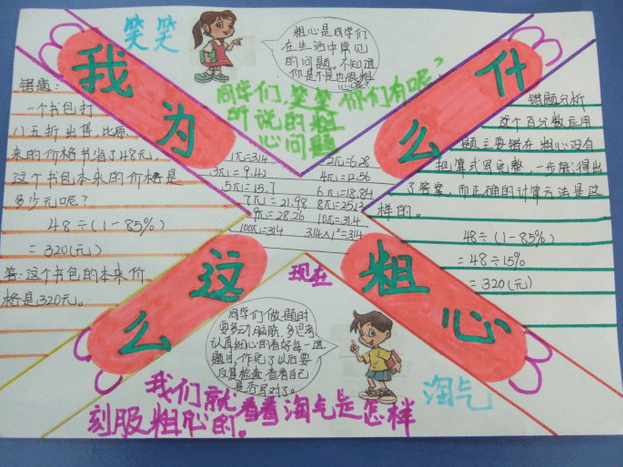 我为什么这么粗心
笑笑
粗心是同学们
在生活中常见
的问题，不知道
你是不是也很粗
心呢？
同学们，笑笑你们有呢？
所说的粗
心问题
错题：
一个书包打
八五折出售，比原
来的价格节省了48元，
这个书包本来的价格是
多少元呢？
48÷(1-85%)
=320(元)
答：这个书包的本来价
格是320元。
1π=3.14 2π=6.28
3π=9.42 4π=12.56
5π=15.7 6π=18.84
7π=21.98 8π=25.12
9π=28.26 10π=31.4
100π=314 3.14×1²=3.14
错题分析
这个百分数应用
题主要错在粗心没有
把算式写完整，一步就得出
了答案，而正确的计算方法是这
样的。
48÷(1-85%)
=48÷15%
=320(元)
现在
同学们做题时
要多动脑筋，多思考
认真细心的看好每一道
题目，作完了以后要
反复检查，看看自己
是否写对了。
淘气
我们就看看淘气是怎样
刻服粗心的。